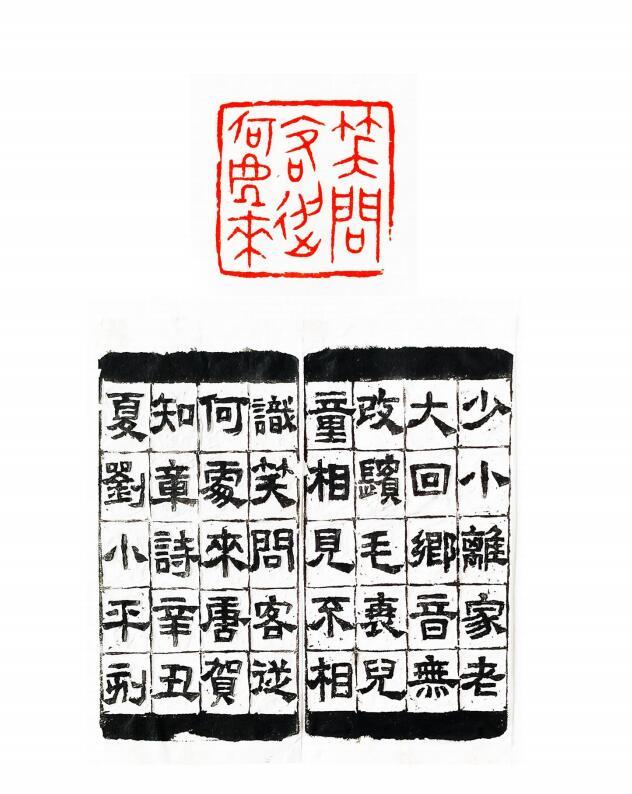 笑問
客從
何處來
少小離家老
大回鄉音無
改鬢毛衰兒
童相見不相
識笑問客從
何處來唐賀
知章詩辛丑
夏劉小平刻